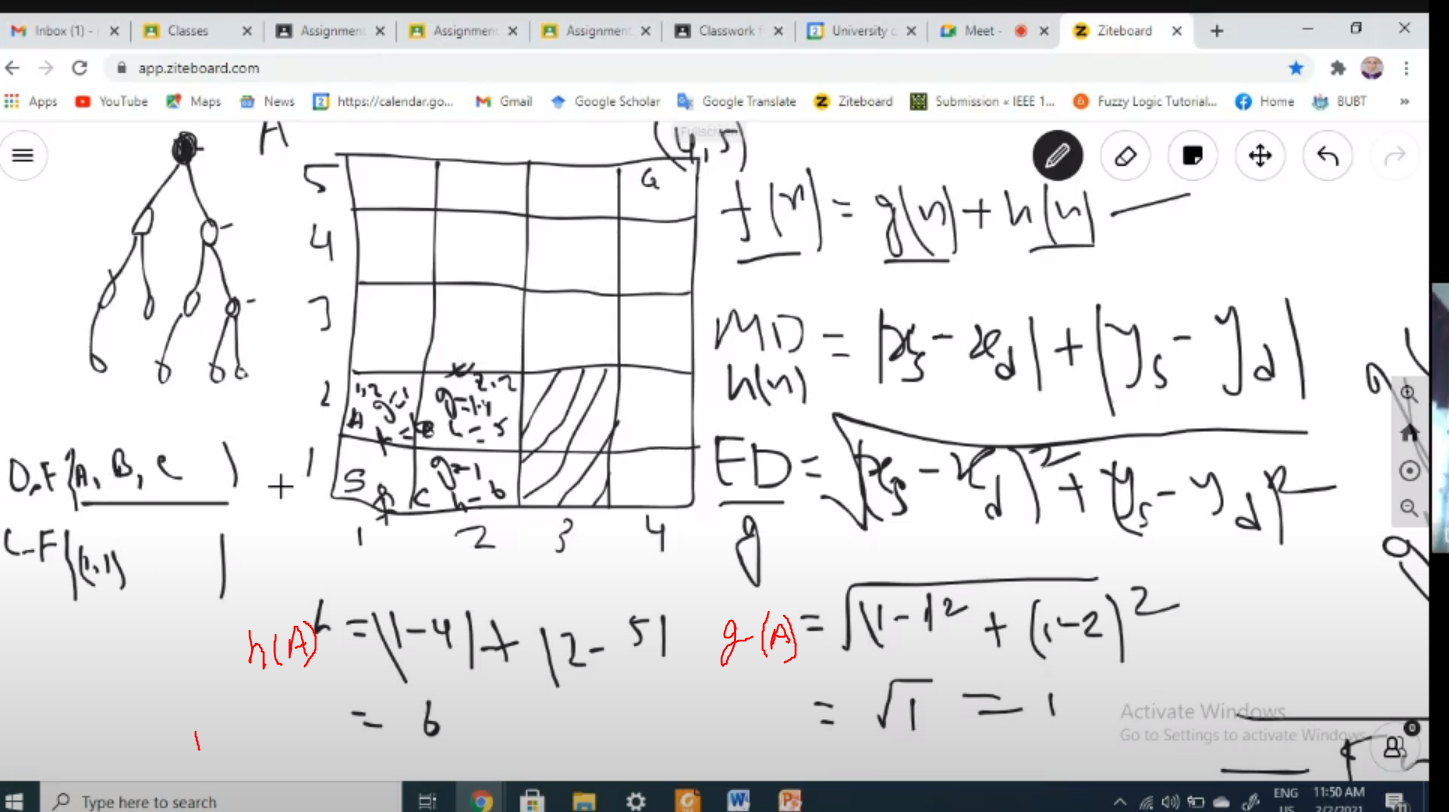 Inbox (1) -
Classes
Assignment
Assignment
Assignment
Classwork f
University c
Meet -
Ziteboard
app.ziteboard.com
Apps
YouTube
Maps
News
https://calendar.go...
Gmail
Google Scholar
Google Translate
Ziteboard
Submission « IEEE 1...
Fuzzy Logic Tutorial...
Home
BUBT
»
A
(4,5)
5
G
4
3
2
1,2
A g=1
2,2
g=1.4
h=5
1
S
C
g=1
h=6
1 2 3 4
f(n) = g(n) + h(n)
MD = |xs - xd| + |ys - yd|
h(n)
ED = √(xs - xd)² + (ys - yd)²
g
O.F{A, B, C }
C-F{(1,1) }
h(A) h = |1-4| + |2-5|
= 6
g(A) = √(1-1)² + (1-2)²
= √1 = 1
Activate Windows
Go to Settings to activate Windows.
0
Type here to search
ENG
US
11:50 AM
2/2/2021